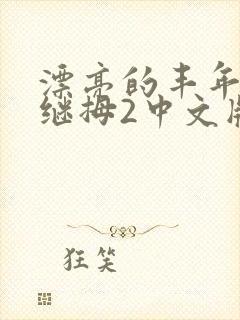 漂亮的丰年
继拇2中文版
狂笑